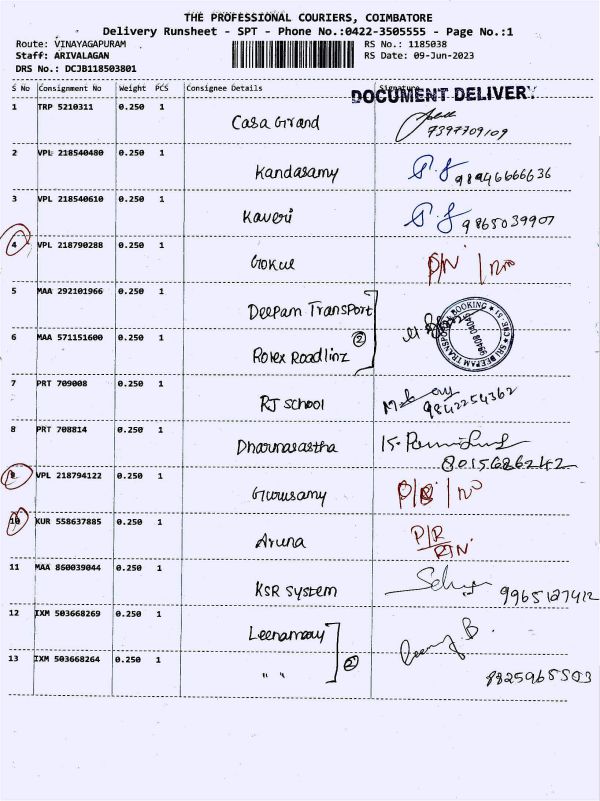 THE PROFESSIONAL COURIERS, COIMBATORE
Delivery Runsheet - SPT - Phone No.:0422-3505555 - Page No.:1
Route: VINAYAGAPURAM RS No.: 1185038
Staff: ARIVALAGAN RS Date: 09-Jun-2023
DRS No.: DCJB118503801
S No Consignment No Weight PCS Consignee Details Signature
DOCUMENT DELIVERY
1 TRP 5210311 0.250 1
Casa Grand 7397709109
2 VPL 218540480 0.250 1
Kandasamy 98946666636
3 VPL 218540610 0.250 1
Kaveri 9865039907
4 VPL 218790288 0.250 1
Gokul
5 MAA 292101966 0.250 1
Deepam Transport
6 MAA 571151600 0.250 1
Rolex Roadlinz 2
BOOKING
SRI DEEPAM TRANSPORT
7 PRT 709008 0.250 1
RJ School 9842254362
8 PRT 708814 0.250 1
Dharmasastha
8015686242
9 VPL 218794122 0.250 1
Gurusamy
10 KUR 558637885 0.250 1
Aruna P/R
RTN
11 MAA 860039044 0.250 1
KSR System 9965127412
12 IXM 503668269 0.250 1
13 IXM 503668264 0.250 1 2
" "